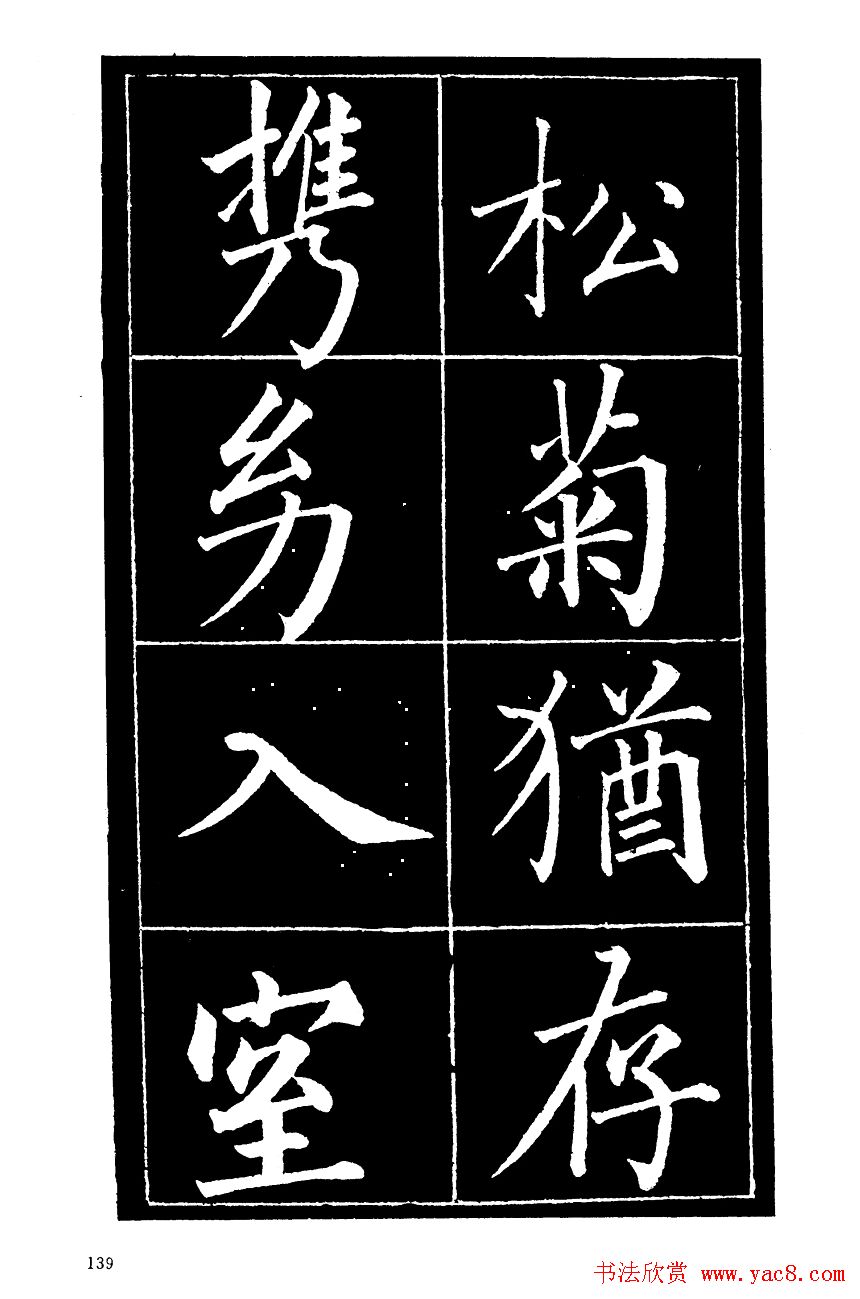 松菊猶存
携幼入室
139
书法欣赏 www.yac8.com